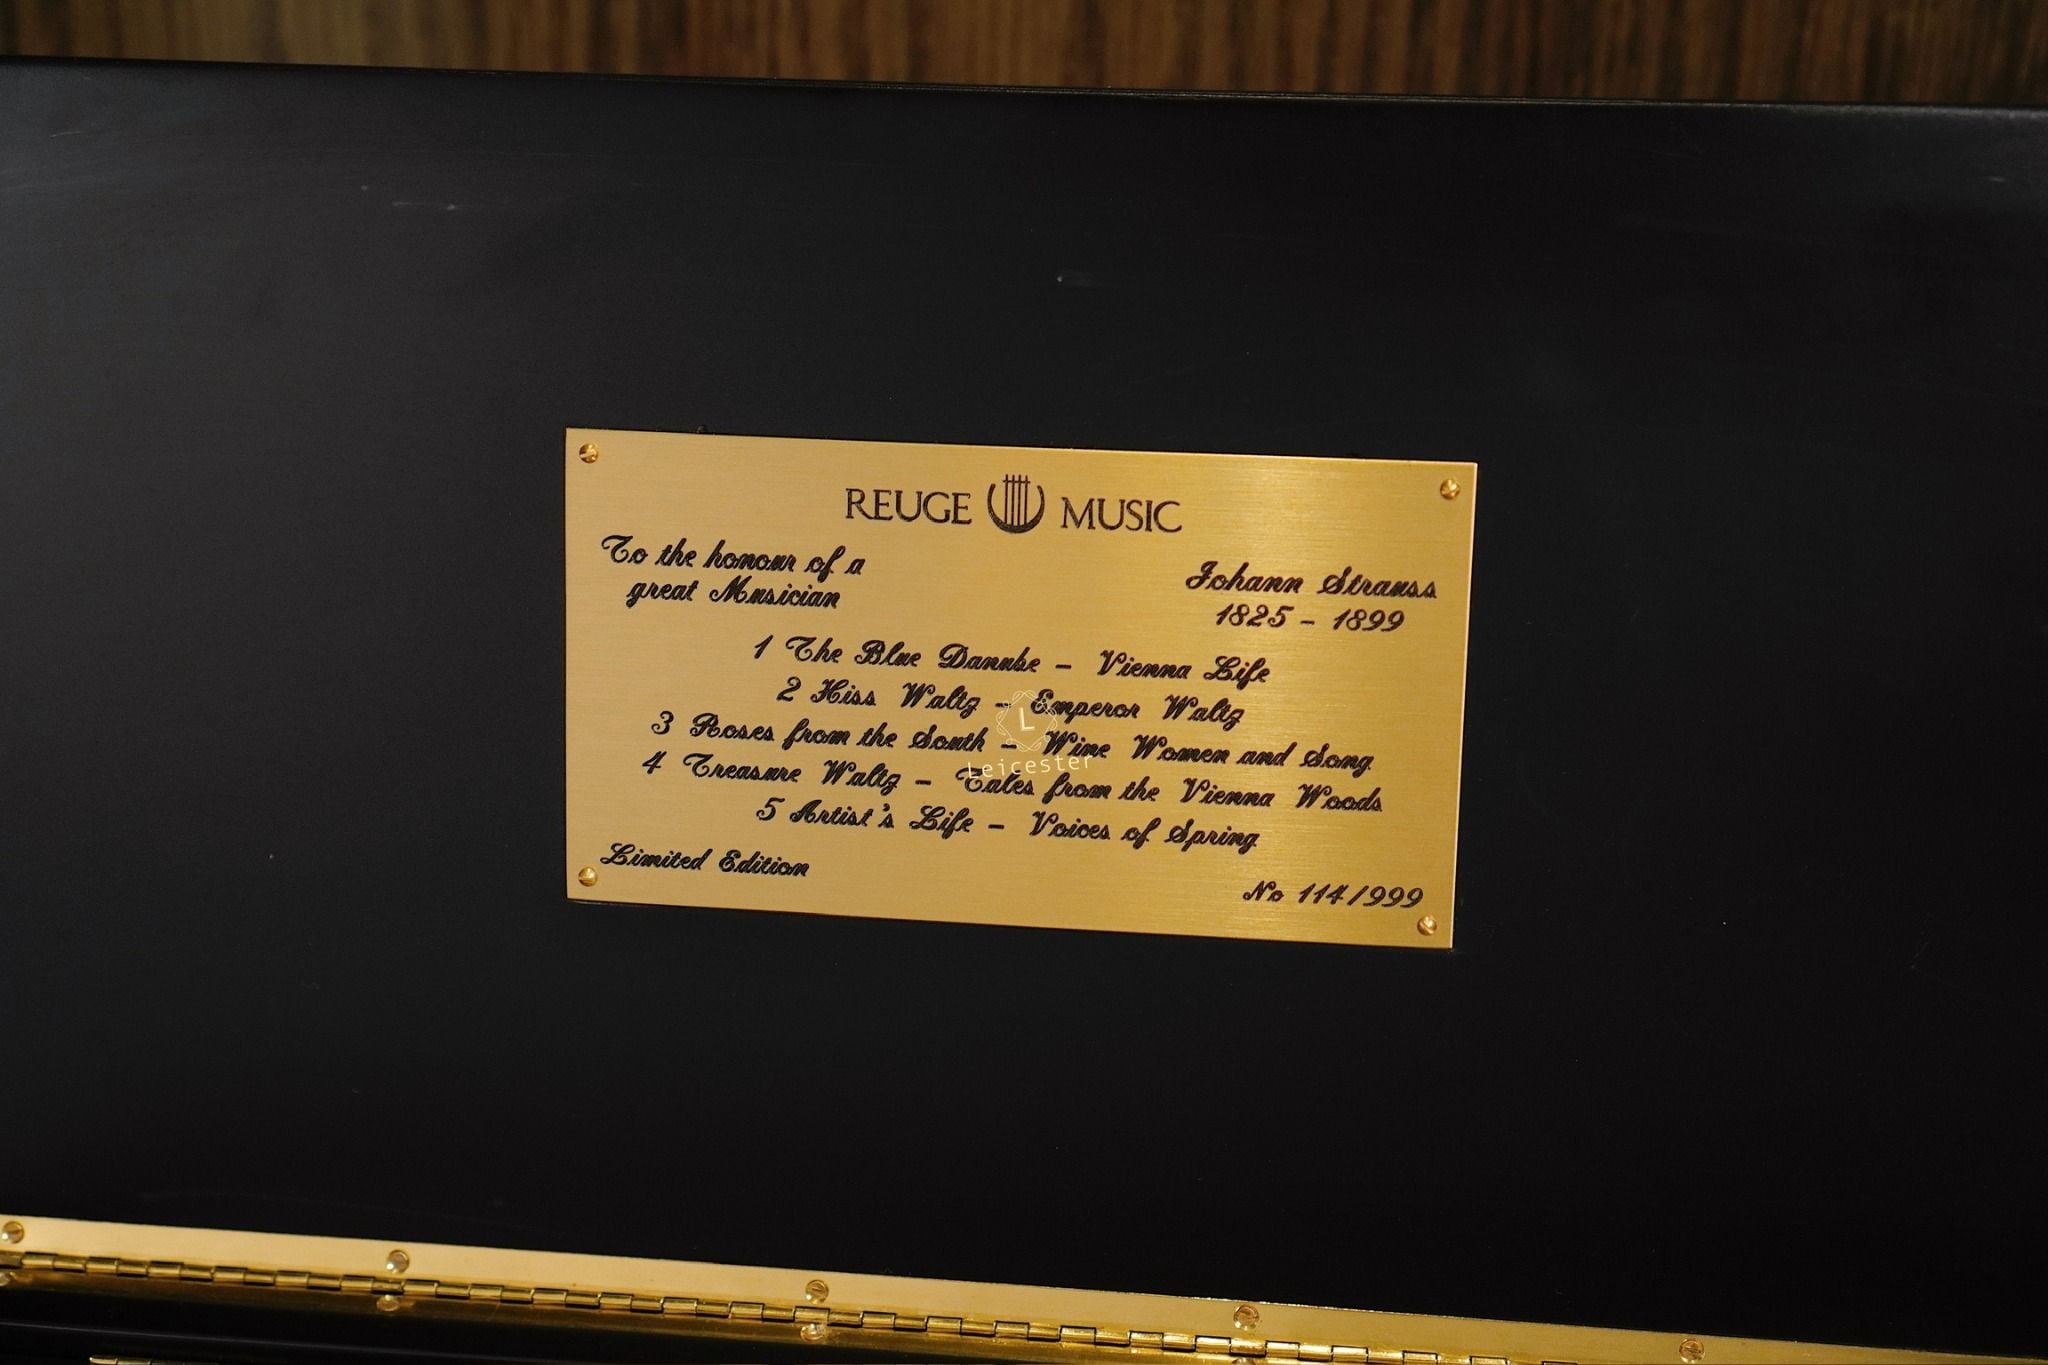 REUGE MUSIC
To the honour of a
great Musician
Johann Strauss
1825 - 1899
1 The Blue Danube - Vienna Life
2 Kiss Waltz - Emperor Waltz
3 Roses from the South - Wine Women and Song
4 Treasure Waltz - Tales from the Vienna Woods
5 Artist's Life - Voices of Spring
Limited Edition
No 114/999
L
Leicester